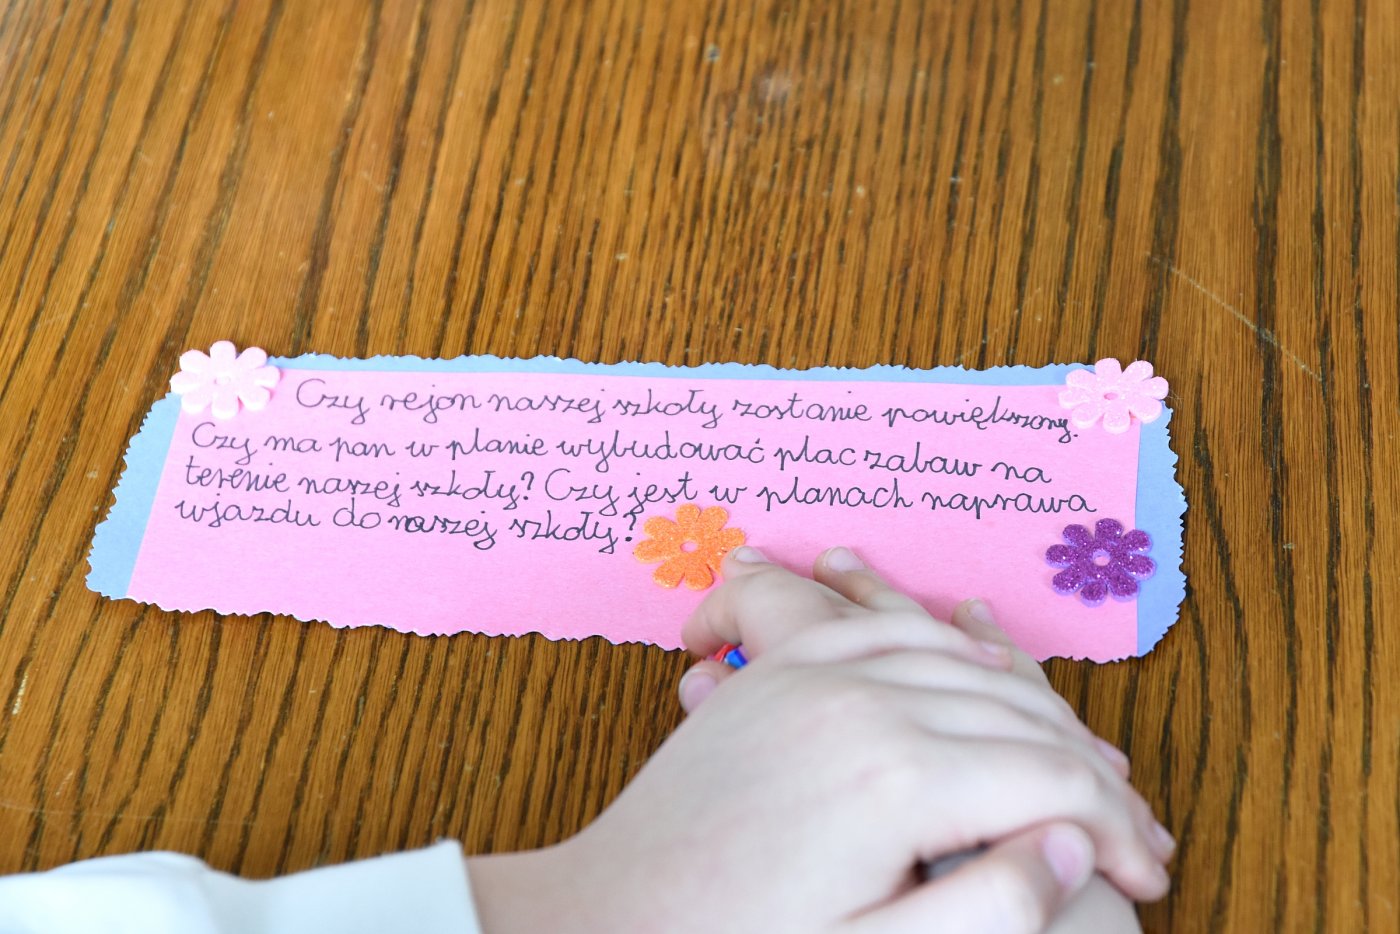 Czy rejon naszej szkoły zostanie powiększony.
Czy ma pan w planie wybudować plac zabaw na
terenie naszej szkoły? Czy jest w planach naprawa
wjazdu do naszej szkoły?